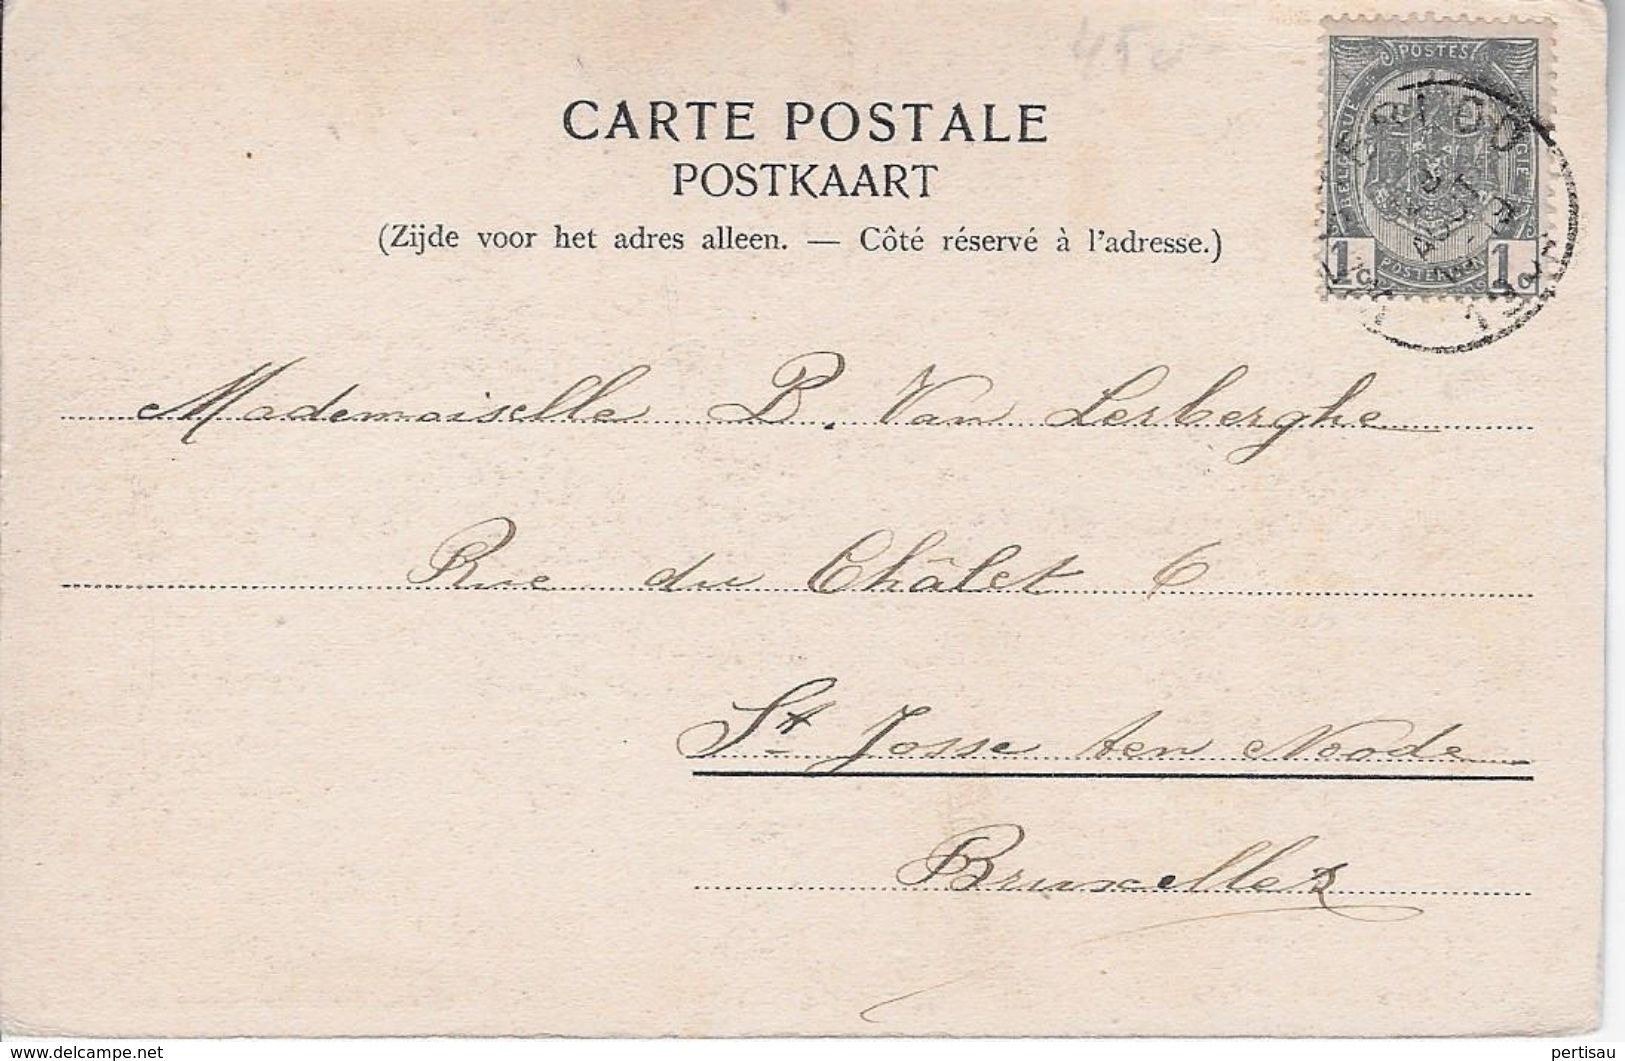 45c
CARTE POSTALE
POSTKAART
(Zijde voor het adres alleen. — Côté réservé à l'adresse.)
POSTES
BELGIQUE
BELGIE
1 1
POSTERIJEN
Mademoiselle B. Van Lerberghe
Rue du Châlet 6
St Josse ten Noode
Bruxelles
www.delcampe.net
pertisau